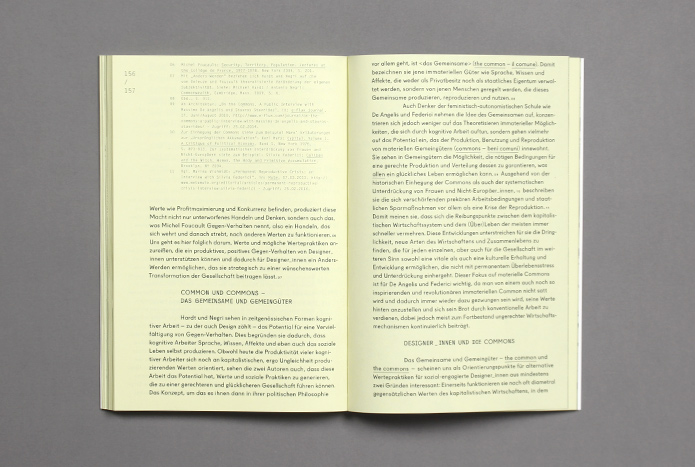 156
/
157
Werte wie Profitmaximierung und Konkurrenz befinden, produziert diese
Macht nicht nur unterworfenes Handeln und Denken, sondern auch das,
was Michel Foucault Gegen-Verhalten nennt, also ein Handeln, das
sich wehrt und danach strebt, nach anderen Werten zu funktionieren.
Uns geht es hier folglich darum, Werte und mögliche Wertepraktiken an-
zureißen, die ein produktives, positives Gegen-Verhalten von Designer_
innen unterstützen können und dadurch für Designer_innen ein Anders-
Werden ermöglichen, das sie strategisch zu einer wünschenswerten
Transformation der Gesellschaft beitragen lässt.
COMMON UND COMMONS –
DAS GEMEINSAME UND GEMEINGÜTER
Hardt und Negri sehen in zeitgenössischen Formen kogni-
tiver Arbeit – zu der auch Design zählt – das Potential für eine Verviel-
fältigung von Gegen-Verhalten. Dies begründen sie dadurch, dass
kognitive Arbeiter Sprache, Wissen, Affekte und eben auch das soziale
Leben selbst produzieren. Obwohl heute die Produktivität vieler kogni-
tiver Arbeiter sich noch an kapitalistischen, ergo Ungleichheit produ-
zierenden Werten orientiert, sehen die zwei Autoren auch, dass diese
Arbeit das Potential hat, Werte und soziale Praktiken zu generieren,
die zu einer gerechteren und glücklicheren Gesellschaft führen können
Das Konzept, um das es ihnen dann in ihrer politischen Philosophie
vor allem geht, ist «das Gemeinsame» (the common – il comune). Damit
bezeichnen sie jene immateriellen Güter wie Sprache, Wissen und
Affekte, die weder als Privatbesitz noch als staatliches Eigentum verwal-
tet werden, sondern von jenen Menschen geregelt werden, die dieses
Gemeinsame produzieren, reproduzieren und nutzen.
Auch Denker der feministisch-autonomistischen Schule wie
De Angelis und Federici nehmen die Idee des Gemeinsamen auf, konzen-
trieren sich jedoch weniger auf das Theoretisieren immaterieller Möglich-
keiten, die sich durch kognitive Arbeit auftun, sondern gehen vielmehr
auf das Potential ein, das der Produktion, Benutzung und Reproduktion
von materiellen Gemeingütern (commons – beni comuni) innewohnt.
Sie sehen in Gemeingütern die Möglichkeit, die nötigen Bedingungen für
eine gerechte Produktion und Verteilung dessen zu garantieren, was
allen ein glückliches Leben ermöglichen kann. Ausgehend von der
historischen Einhegung der Commons als auch der systematischen
Unterdrückung von Frauen und Nicht-Europäer_innen, beschreiben
sie die sich verschärfenden prekären Arbeitsbedingungen und staat-
lichen Sparmaßnahmen vor allem als eine Krise der Reproduktion.
Damit meinen sie, dass sich die Reibungspunkte zwischen dem kapitalis-
tischen Wirtschaftssystem und dem (Über)Leben der meisten immer
schneller vermehren. Diese Entwicklungen unterstreichen für sie die Dring-
lichkeit, neue Arten des Wirtschaftens und Zusammenlebens zu
finden, die für jeden einzelnen, aber auch für die Gesellschaft im wei-
teren Sinn sowohl eine vitale als auch eine kulturelle Erhaltung und
Entwicklung ermöglichen, die nicht mit permanentem Überlebensstress
und Unterdrückung einhergeht. Dieser Fokus auf materielle Commons
ist für De Angelis und Federici wichtig, da man von einem auch noch so
inspirierenden und revolutionären immateriellen Common nicht satt
wird und dadurch immer wieder dazu gezwungen sein wird, seine Werte
hinten anzustellen und sich sein Brot durch konventionelle Arbeit zu
verdienen, dabei jedoch meist zum Fortbestand ungerechter Wirtschafts-
mechanismen kontinuierlich beitragt.
DESIGNER_INNEN UND DIE COMMONS
Das Gemeinsame und Gemeingüter – the common und
the commons – scheinen uns als Orientierungspunkte für alternative
Wertepraktiken für sozial-engagierte Designer_innen aus mindestens
zwei Gründen interessant: Einerseits funktionieren sie nach oft diametral
gegensätzlichen Werten des kapitalistischen Wirtschaftens, in dem